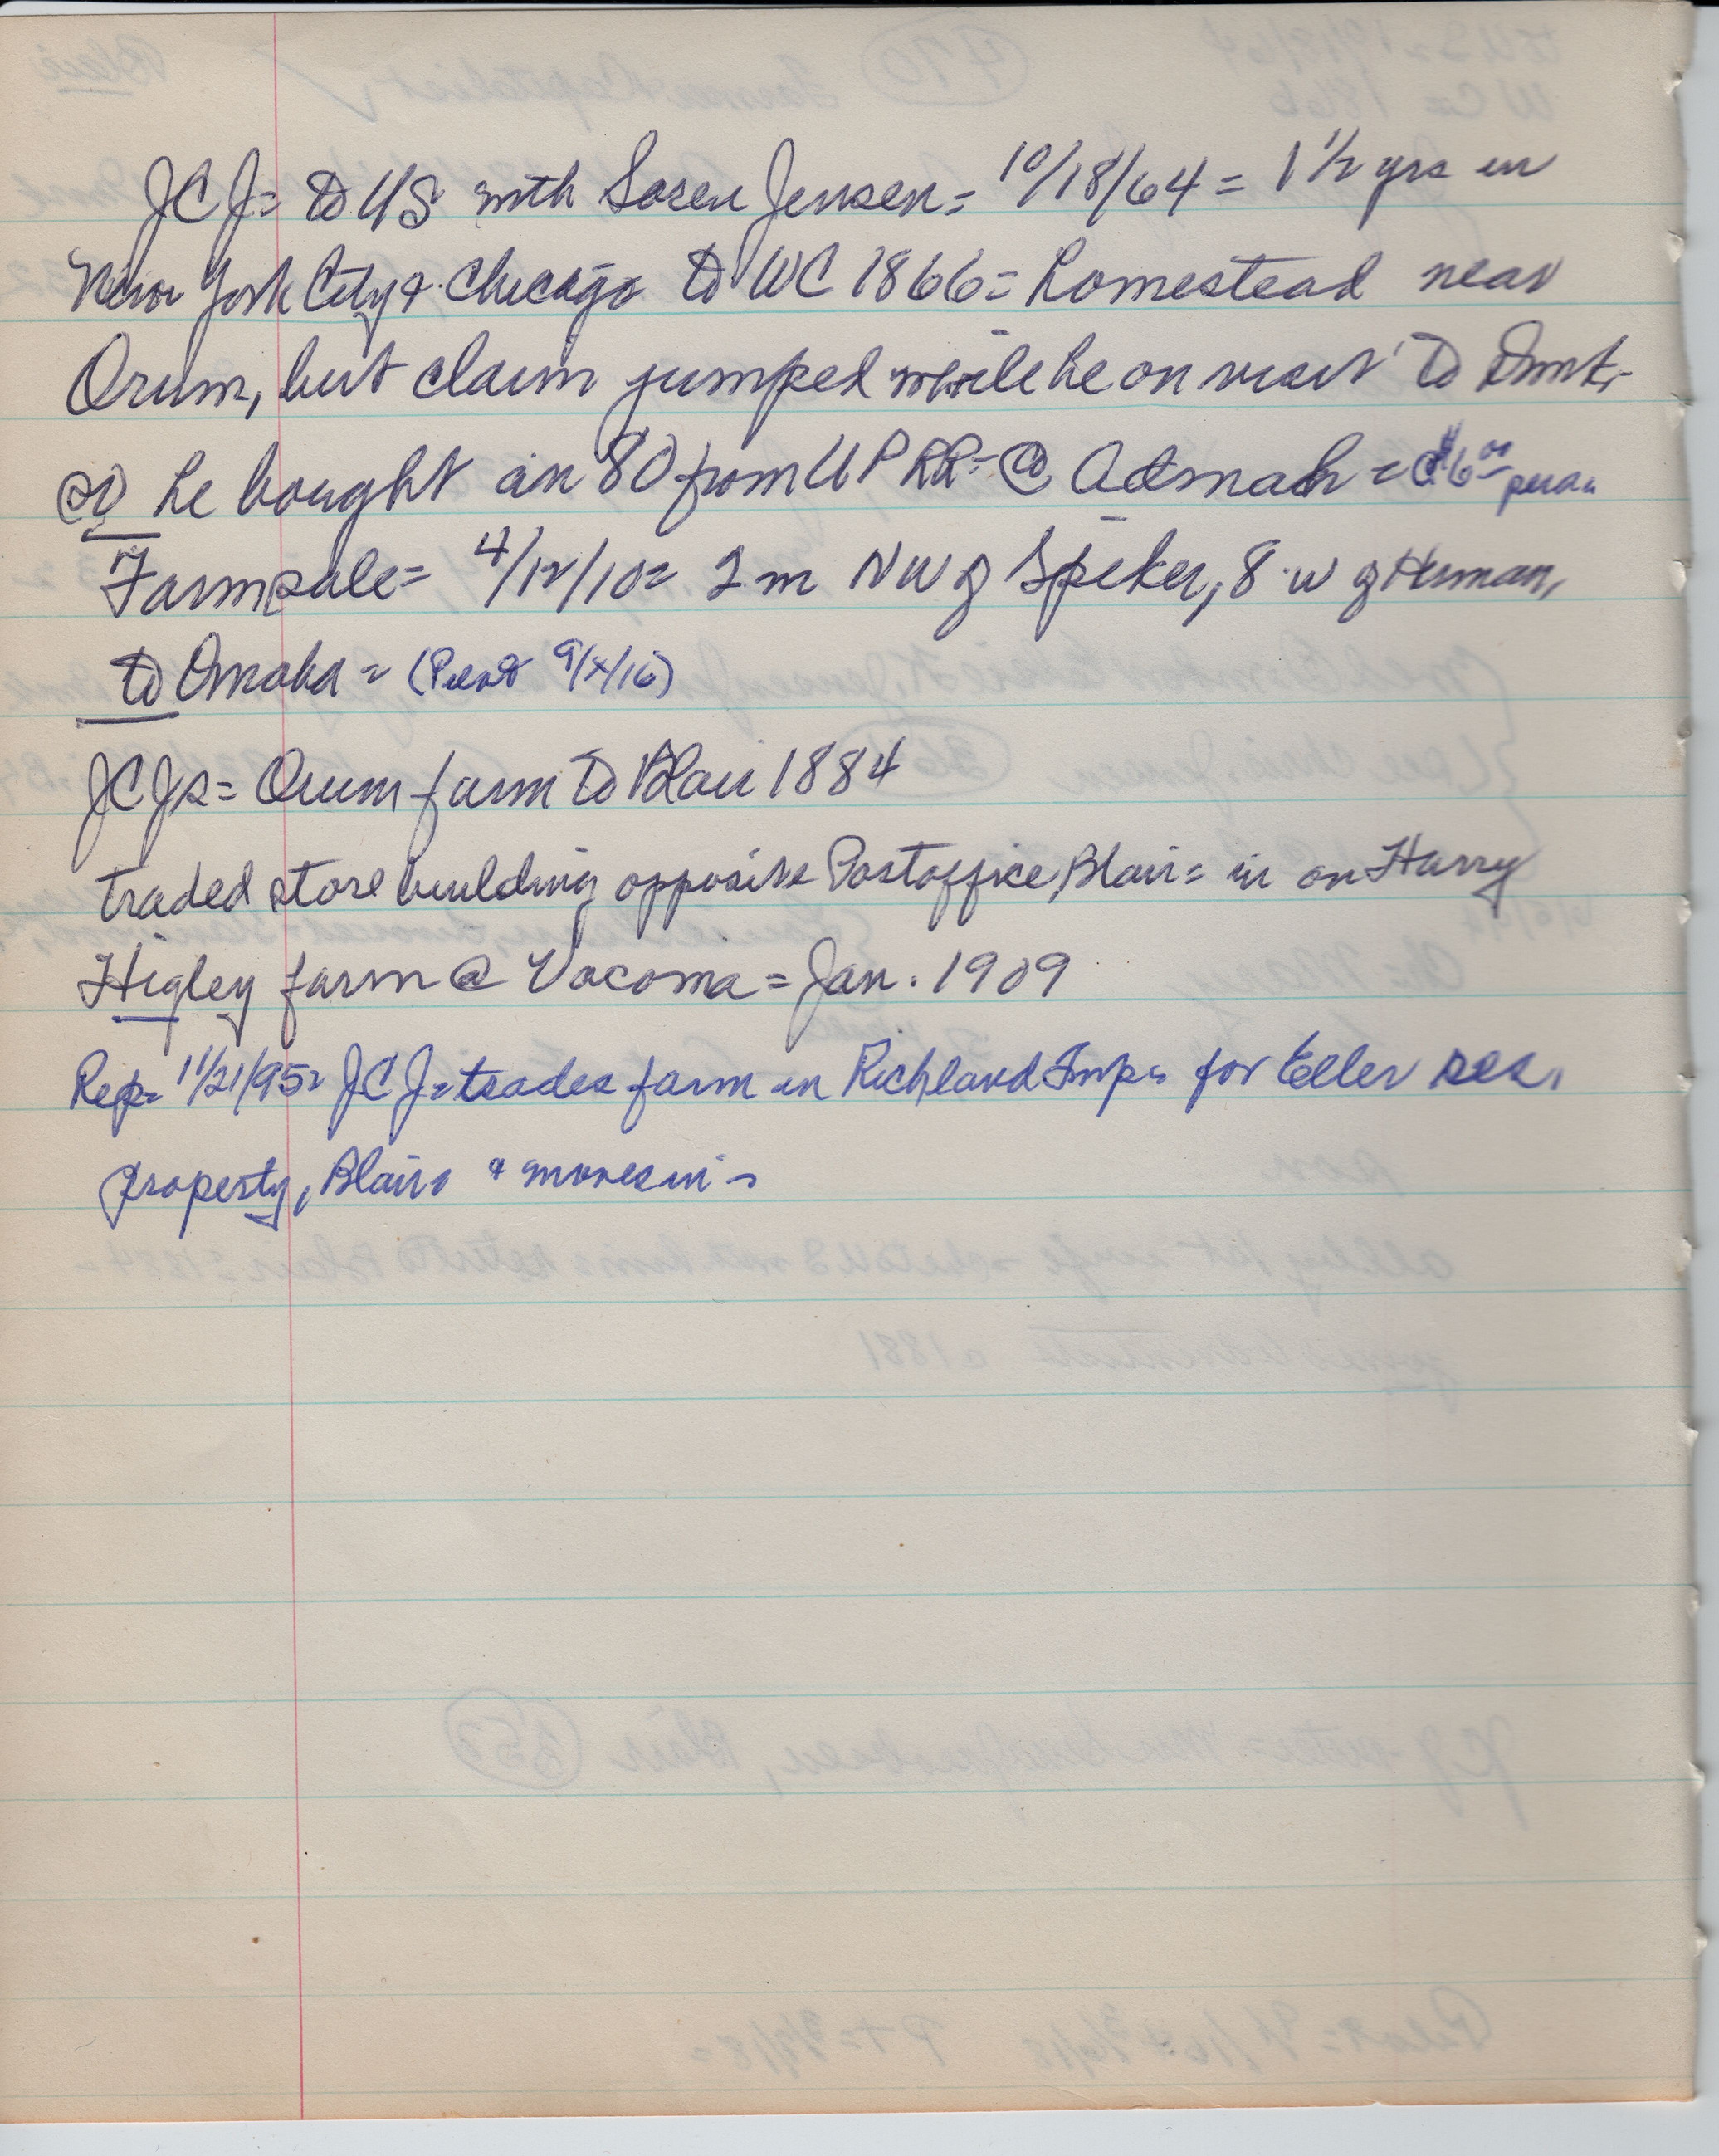 JCJ= to US with Soren Jensen= 10/18/64 = 1 1/2 yrs in
New York City & Chicago to WC 1866= homestead near
Orum, but claim jumped while he on visit to Dmk-
so he bought an 80 from UPRR- @ Admah = @ $6.00 per ac
Farm sale= 4/12/10= 2 m NW of Spiker, 8 w of Herman,
to Omaha = (Pilot 9/ /16)
JCJs= Orum farm to Blair 1884
traded store building opposite Postoffice, Blair= in on Harry
Higley farm @ Vacoma = Jan. 1909
Rep= 11/21/95= JCJ= trades farm in Richland Twp= for Eller res.
property, Blair & moves in -